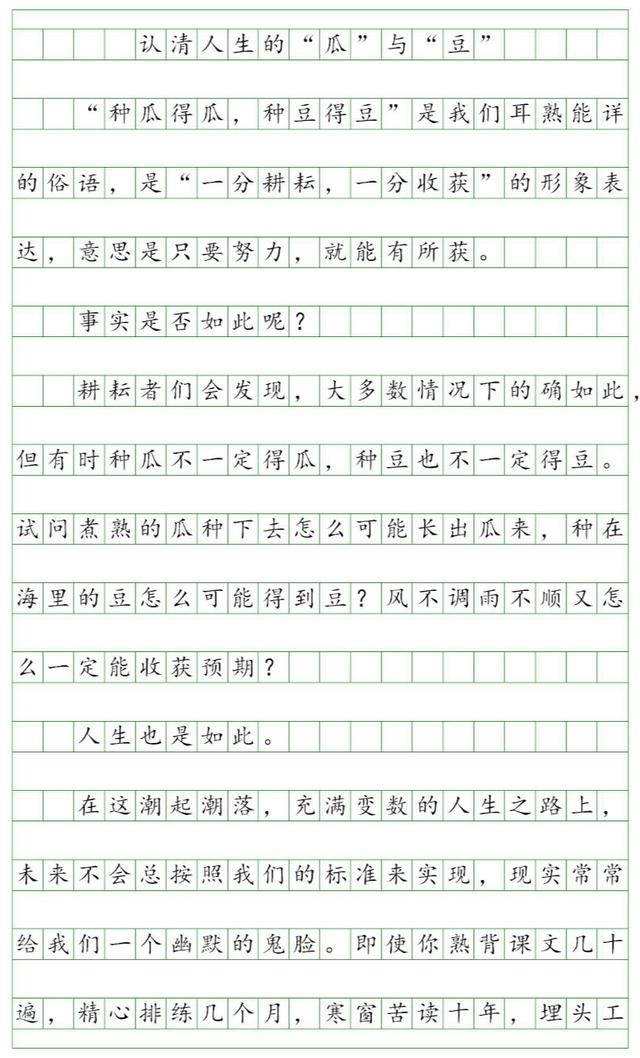 认清人生的“瓜”与“豆”
“种瓜得瓜，种豆得豆”是我们耳熟能详
的俗语，是“一分耕耘，一分收获”的形象表
达，意思是只要努力，就能有所获。
事实是否如此呢？
耕耘者们会发现，大多数情况下的确如此，
但有时种瓜不一定得瓜，种豆也不一定得豆。
试问煮熟的瓜种下去怎么可能长出瓜来，种在
海里的豆怎么可能得到豆？风不调雨不顺又怎
么一定能收获预期？
人生也是如此。
在这潮起潮落，充满变数的人生之路上，
未来不会总按照我们的标准来实现，现实常常
给我们一个幽默的鬼脸。即使你熟背课文几十
遍，精心排练几个月，寒窗苦读十年，埋头工